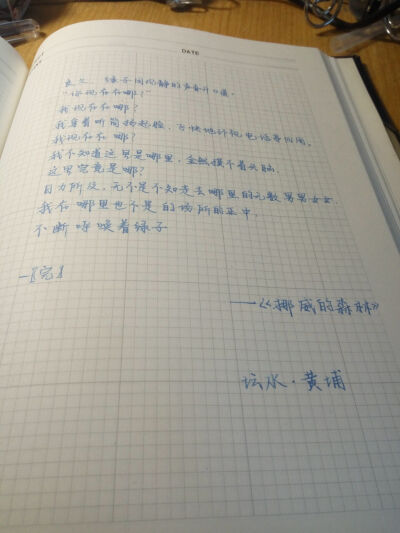 DATE
良久，绿子用沉静的声音开口道。
“你现在在哪？”
我现在在哪？
我拿着听筒扬起脸，飞快地环视电话亭四周。
我现在在哪？
我不知道这里是哪里，全然摸不着头脑。
这里究竟是哪？
目力所及，无不是不知走去哪里的无数男男女女。
我在哪里也不是的场所的正中，
不断呼唤着绿子
—【完】
——《挪威的森林》
坛水·黄埔